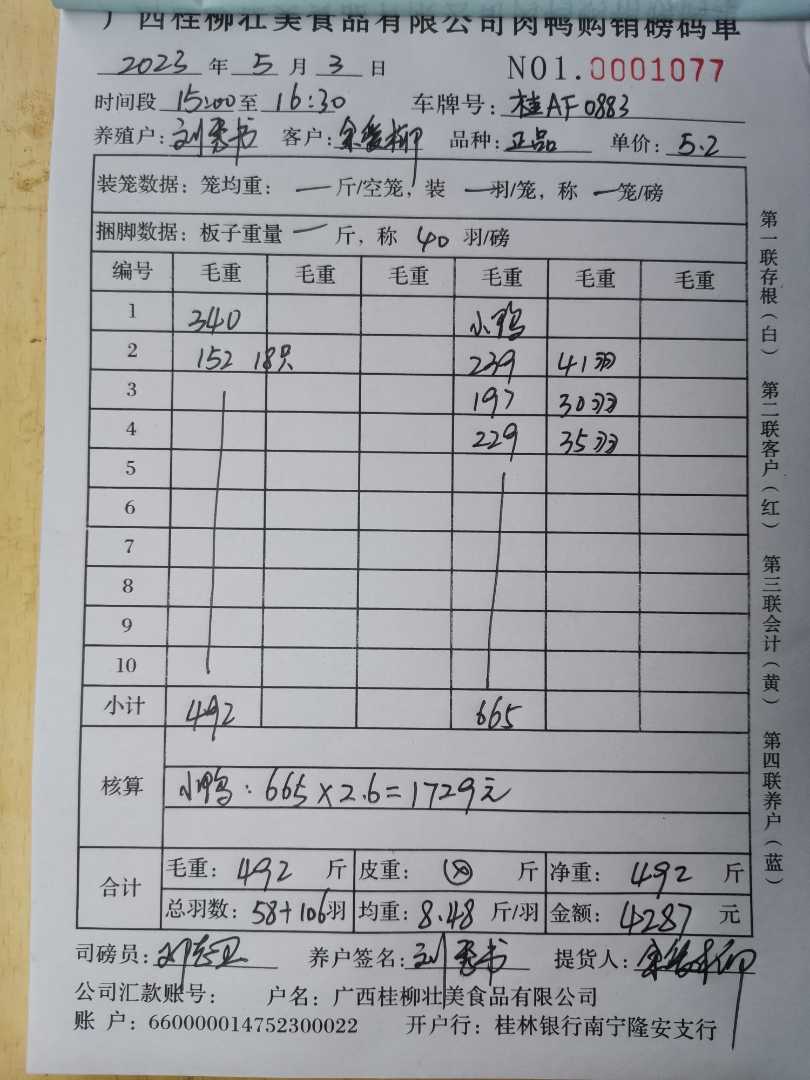 广西桂柳壮美食品有限公司肉鸭购销磅码单
2023 年 5 月 3 日 NO1.0001077
时间段 15:00 至 16:30 车牌号: 桂AF0883
养殖户: 刘 书 客户: 柳 品种: 正品 单价: 5.2
装笼数据: 笼均重: 一 斤/空笼, 装 一 羽/笼, 称 一 笼/磅
捆脚数据: 板子重量 一 斤, 称 40 羽/磅
编号 毛重 毛重 毛重 毛重 毛重 毛重
1 340 小鸭
2 152 18只 239 41羽
3 197 30羽
4 229 35羽
5
6
7
8
9
10
小计 492 665
核算 小鸭: 665×2.6=1729元
合计 毛重: 492 斤 皮重: 斤 净重: 492 斤
总羽数: 58+106 羽 均重: 8.48 斤/羽 金额: 4287 元
司磅员: 养户签名: 刘 书 提货人:
公司汇款账号: 户名: 广西桂柳壮美食品有限公司
账 户: 660000014752300022 开户行: 桂林银行南宁隆安支行
第一联存根(白) 第二联客户(红) 第三联会计(黄) 第四联养户(蓝)